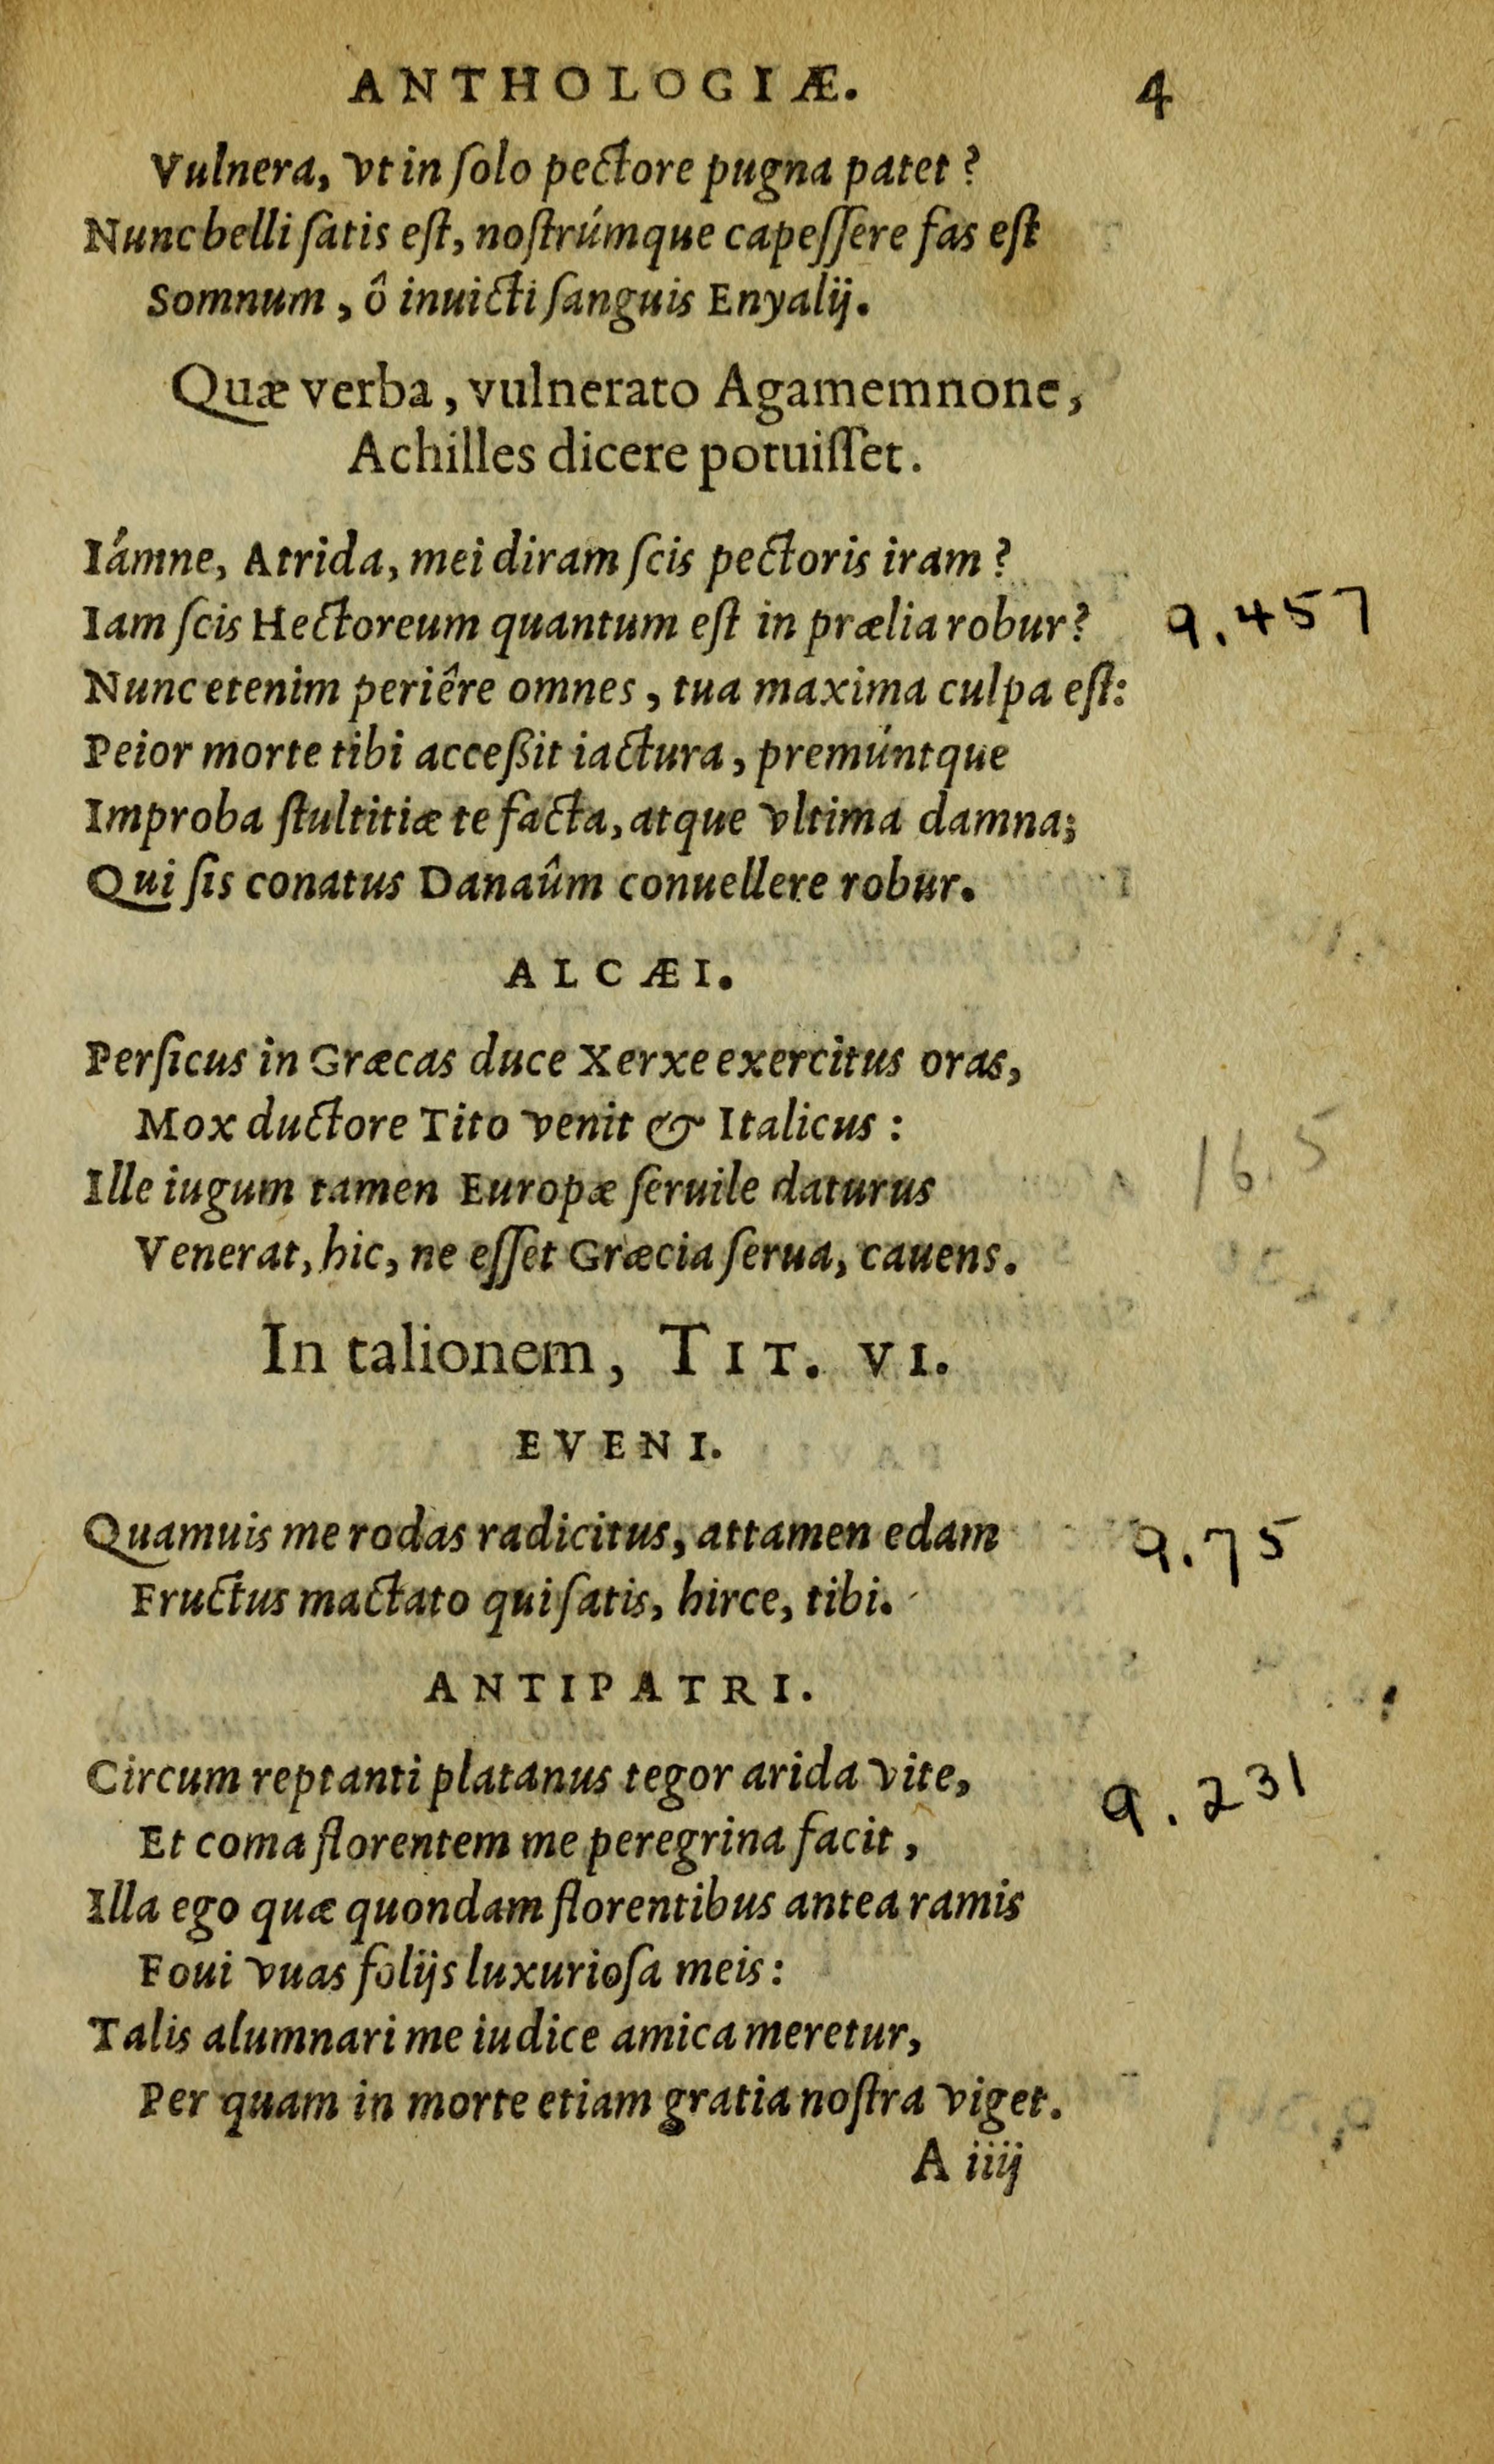 ANTHOLOGIÆ. 4
Vulnera, vt in ſolo pectore pugna patet?
Nunc belli ſatis eſt, noſtrúmque capeſſere fas eſt
Somnum, ô inuicti ſanguis Enyalij.
Quæ verba, vulnerato Agamemnone,
Achilles dicere potuiſſet.
Iámne, Atrida, mei diram ſcis pectoris iram?
Iam ſcis Hectoreum quantum eſt in prælia robur? 9.457
Nunc etenim periêre omnes, tua maxima culpa eſt:
Peior morte tibi acceßit iactura, premúntque
Improba ſtultitiæ te facta, atque vltima damna;
Qui ſis conatus Danaûm conuellere robur.
ALCÆI.
Perſicus in Græcas duce Xerxe exercitus oras,
Mox ductore Tito venit & Italicus: 16.5
Ille iugum tamen Europæ ſeruile daturus
Venerat, hic, ne eſſet Græcia ſerua, cauens.
In talionem, TIT. VI.
EVENI.
Quamuis me rodas radicitus, attamen edam 9.75
Fructus mactato qui ſatis, hirce, tibi.
ANTIPATRI.
Circum reptanti platanus tegor arida vite, 9.231
Et coma florentem me peregrina facit,
Illa ego quæ quondam florentibus antea ramis
Foui vuas folijs luxurioſa meis:
Talis alumnari me iudice amica meretur,
Per quam in morte etiam gratia noſtra viget.
A iiij